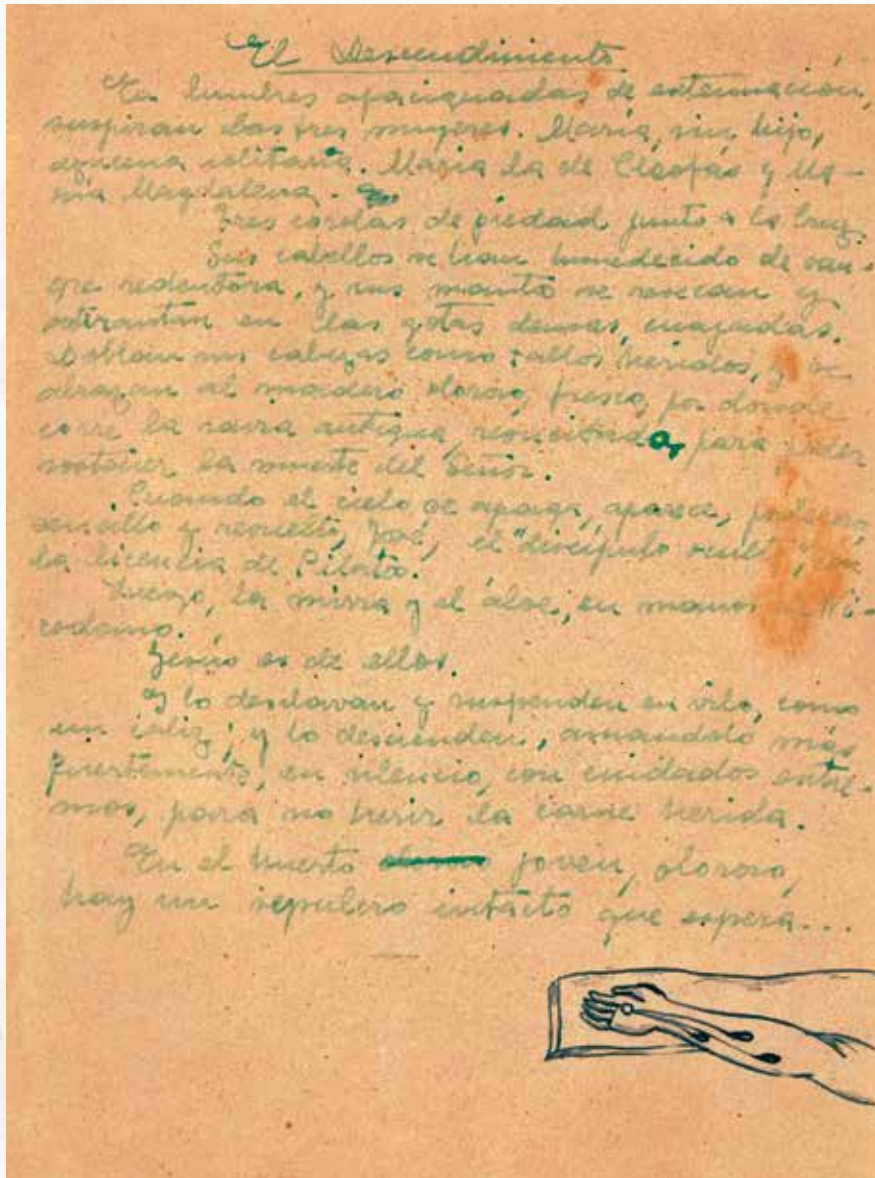 El Descendimiento
En lumbres apaciguadas de extenuación,
suspiran las tres mujeres. María, sin hijo,
azucena solitaria. María la de Cleofás y Ma-
ría Magdalena.
Tres corolas de piedad junto a la Cruz.
Sus cabellos se han humedecido de san-
gre redentora, y sus mantos se resecan y
estirantan en las gotas densas, cuajadas.
Doblan sus cabezas como tallos heridos, y se
abrazan al madero oloroso, fresco, por donde
corre la savia antigua, resucitada, para poder
sostener la muerte del Señor.
Cuando el cielo se apaga, aparece, poderoso,
sencillo y resuelto, José, el "discípulo oculto", con
la licencia de Pilato.
Luego, la mirra y el áloe, en manos de Ni-
codemo.
Jesús es de ellos.
Y lo desclavan y suspenden en vilo, como
un cáliz; y lo descienden, amándolo más
fuertemente, en silencio, con cuidados extre-
mos, para no herir la carne herida.
En el huerto joven, oloroso,
hay un sepulcro intacto que espera...